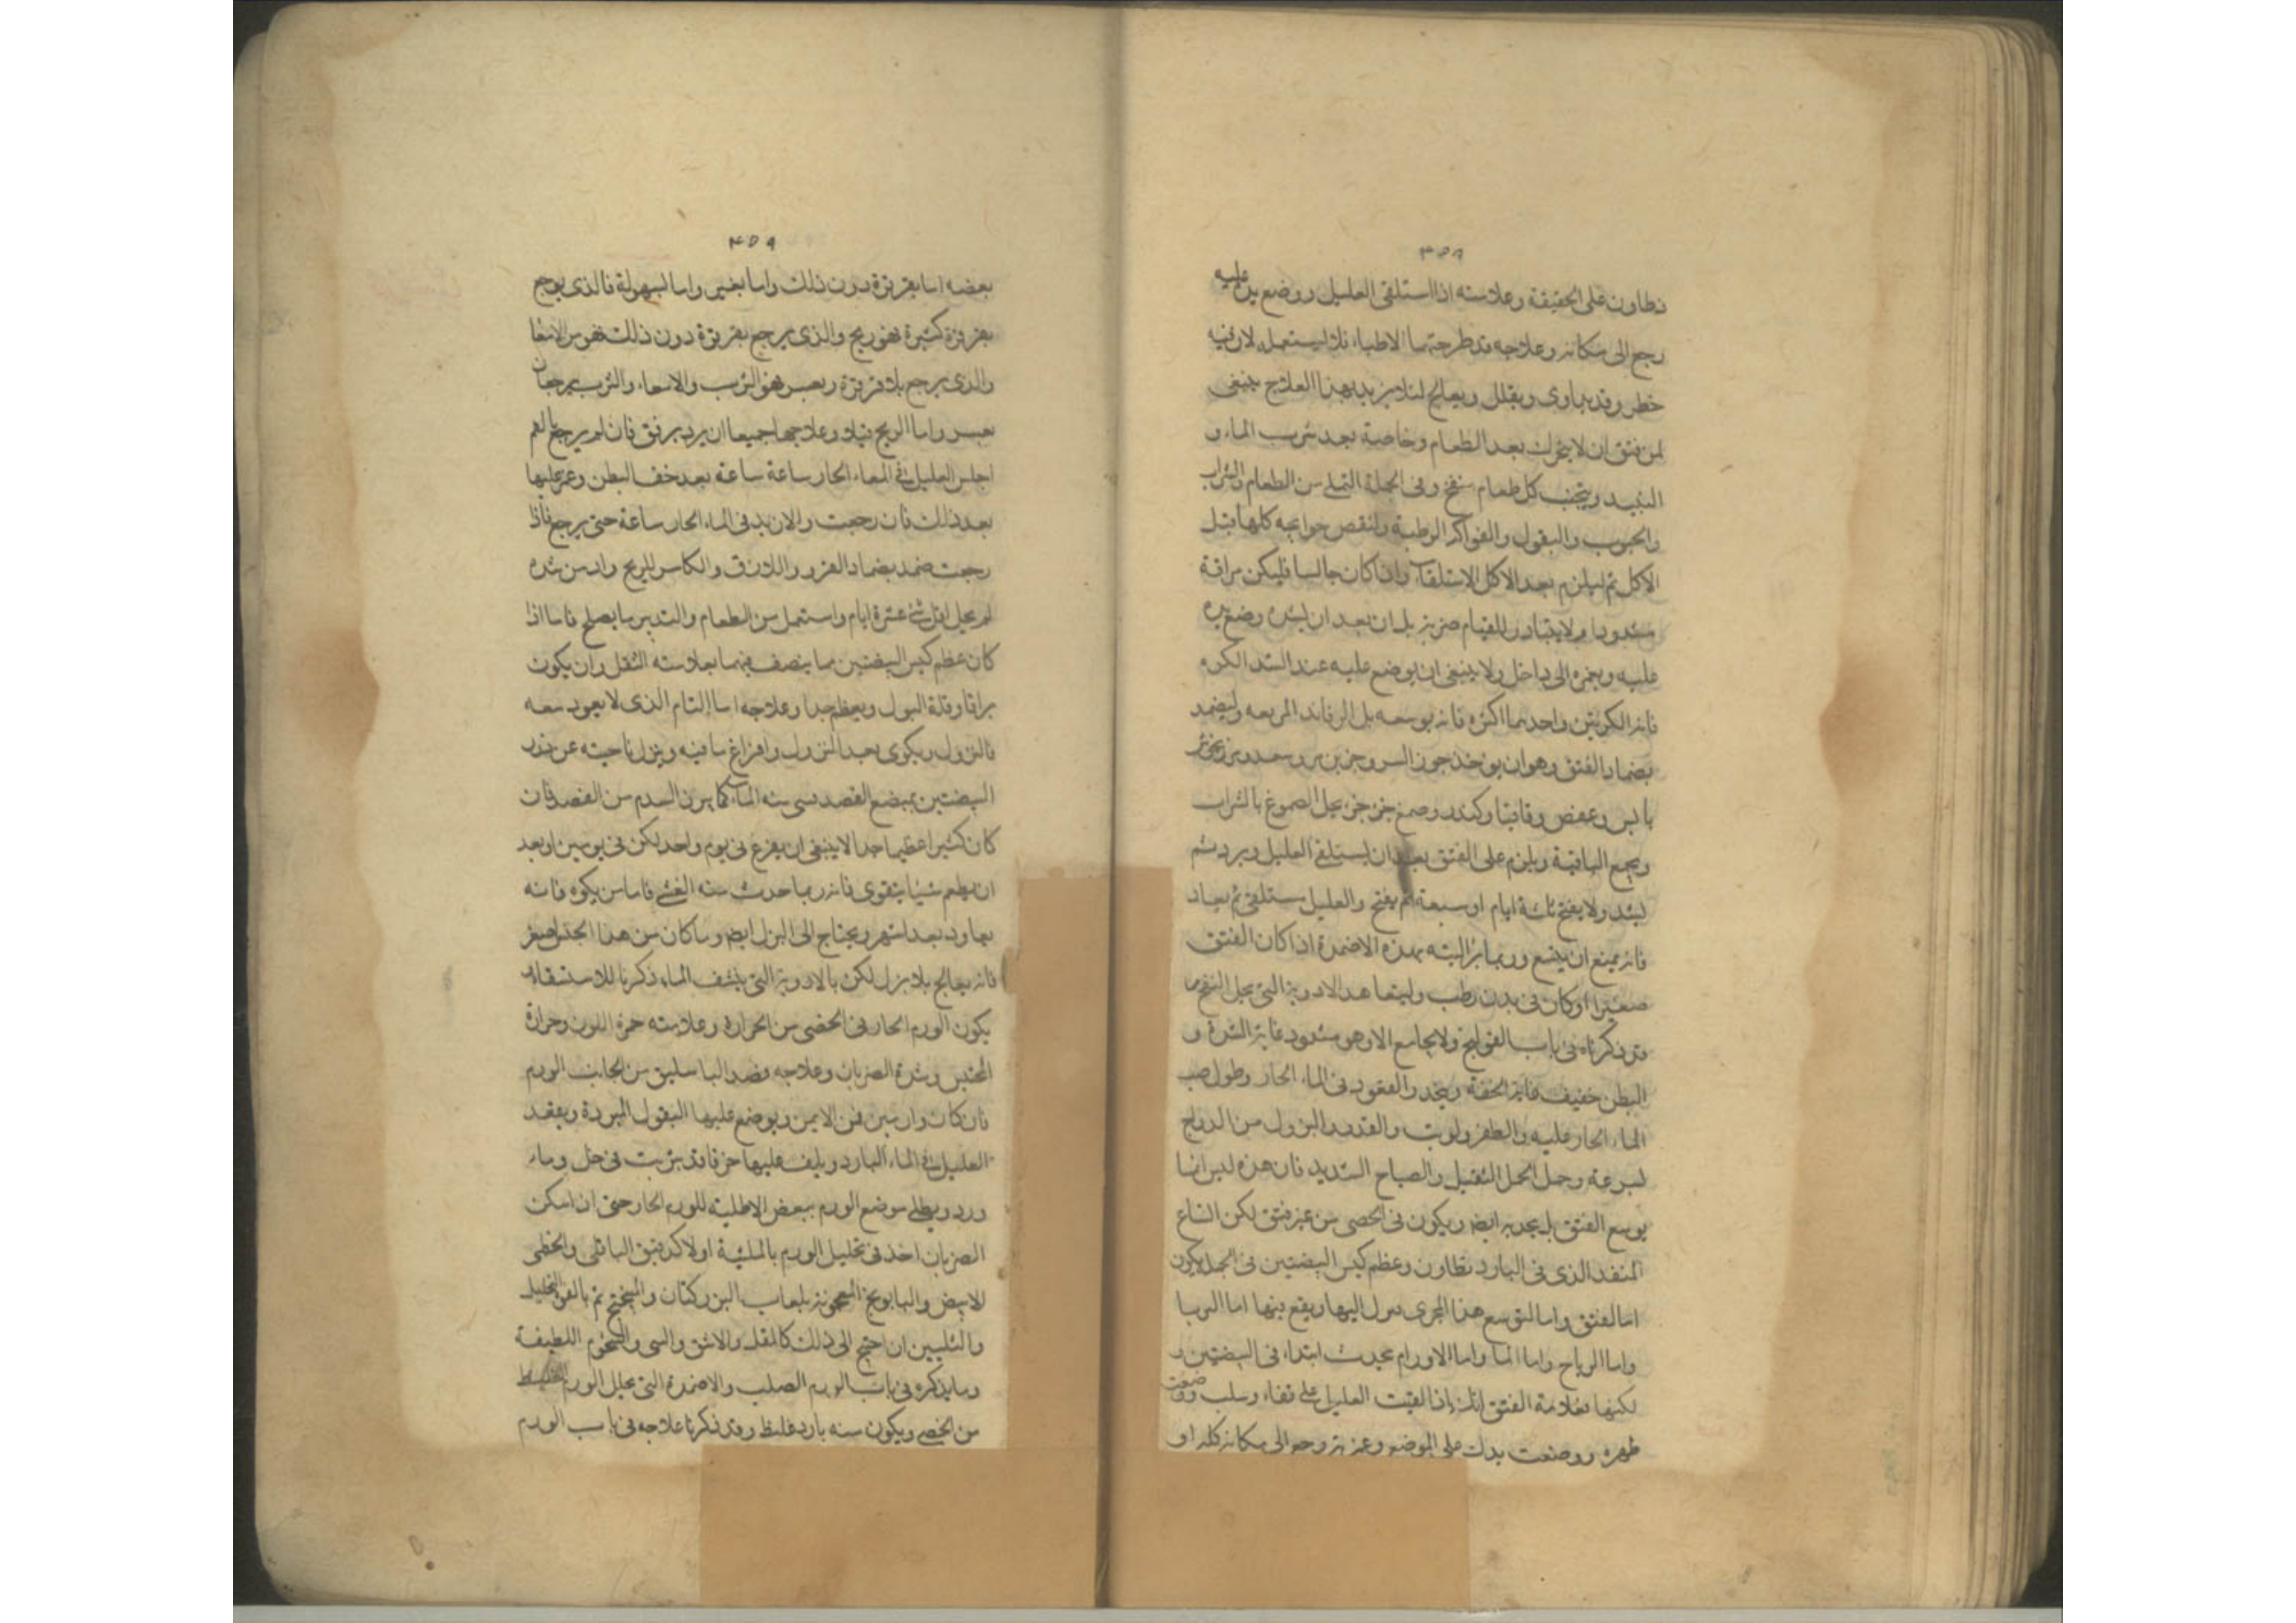 ٣٥٨
تطاون على الحقيقة وعلامته اذا استلقى العليل ووضع يده عليه
رجع الى مكانه وعلاجه قد طرحتها الاطباء فلا يستعمله لان فيه
خطر وقد يداوى ويقلل ويعالج لئلا يزيد بهذا العلاج ينبغى
لمن فتق ان لا يتحرك بعد الطعام وخاصة بعد شرب الماء و
النبيد ويتجنب كل طعام منفخ وفى الجملة التملى من الطعام والشراب
والحبوب والبقول والفواكه الرطبة ولنقص حوايجه كلها قبل
الاكل ثم ليلزم بعد الاكل الاستلقاء وان كان جالسا فليكن مراقة
مشدودا ولا يتبادر للقيام بل ان بعد ان يشده وضع يده
عليه ويغمزه الى داخل ولا ينبغى ان يوضع عليه عند الشد الكره
فانه يوسعه بل الرفائد المربعه وليضمد
بضماد الفتق وهو ان يوخذ جوز السرو
يابس وعفص وقاقيا وكندر وصمغ جزء جزء يحل الصموغ بالشراب
ويجمع الباقية ويلزم على الفتق بعد ان يستلقى العليل ويرد ثم
ليشد ولا يفتح ثلثة ايام او سبعة ثم يفتح والعليل مستلقى ثم يعاد
فانه يمنع ان يتسع وربما البته بهذه الاضمدة اذا كان الفتق
صغيرا او كان فى بدن رطب وليتعاهد الادوية التى يحل النفخ
قد ذكرناه فى باب القولنج ولا يجامع الا وهو مشدود غاية الشدة و
البطن خفيف غاية الخفة ويحذر القعود فى الماء الحار وطول صب
الماء الحار عليه والطفر والوثب والنزول من الدرج
لسرعة وحمل الحمل الثقيل والصياح الشديد فان هذه ليس انما
يوسع الفتق بل يحدثه ايضا ويكون فى الخصى من غير فتق لكن اتساع
المنفذ الذى فى الباريطاون وعظم كيس البيضتين فى الجملة يكون
اما لفتق واما لتوسع هذا المجرى اليها ويقع بينها اما الثربا
واما الرياح واما الما واما الاورام يحدث ابتداء فى البيضتين و
لكنها فعلامة الفتق انك اذا القيت العليل على قفاء وسلب ووضعت
ظهره ووضعت يدك على الموضع وغمزته رجع الى مكانه كله او
٣٥٩
بعضه اما بقرقرة دون ذلك واما بغير واما لسهولة فالذى يرجع
بقرقرة كثيرة فهو ريح والذى يرجع بقرقرة دون ذلك فهو من الامعا
والذى يرجع بلا قرقرة وبعسر فهو الثرب والامعاء والثرب يرجعان
بعسر واما الريح فلا وعلاجها جميعا ان يرد برفق فان لم يرجع نعم
اجلس العليل فى الماء الحار ساعة ساعة بعد خف البطن وغمز عليها
بعد ذلك فان رجعت والا زيد فى الماء الحار ساعة حتى يرجع فاذا
رجعت ضمد بضماد الغرور واللازق والكاسر للريح وادمن شده
لم يحل اقل شى عشرة ايام واستعمل من الطعام والتدبير ما يصلح فاما اذا
كان عظم كيس البيضتين مما ينصف فيهما بعلامته الثقل وان يكون
براقا وقلة البول ويعظم جدا وعلاجه اما التام الذى لا يعود معه
فالنزول ويكوى بعد النزول وافراغ ما فيه وينزل ناحيته عن درز
البيضتين بمبضع الفصد منه الماء كما يبرز الدم من الفصد فان
كان كثيرا عظيما جدا لا ينبغى ان يفرغ فى يوم واحد لكن فى يومين او بعد
ان يطعم شيئا يتقوى فانه ربما حدث منه الغشى فاما من يكوه فانه
يعاود بعد اشهر ويحتاج الى البزل ايضا وما كان من هذا الجنس اصغر
فانه يعالج بلا بزل لكن بالادوية التى ينشف الماء ذكرنا للاستسقاء
يكون الورم الحار فى الخصى من الحرارة وعلامته حمرة اللون وحرارة
المجس وشدة الضربان وعلاجه فصد الباسليق من الجانب الورم
فان كان وارمين فمن الايمن ويوضع عليها البقول المبردة ويقعد
العليل فى الماء البارد ويلف عليها خرقا قد بربت فى خل وماء
ورد ويطلى موضع الورم ببعض الاطلية للورم الحار حتى ان اسكن
الضربان اخذ فى تحليل الورم بالملينة اولا كدقيق الباقلى والخطمى
الابيض والبابونج المعجونة بلعاب البزركتان والميبختج ثم بالقوة التحليل
والتليين ان احتج الى ذلك كالمقل والاشق والشحوم اللطيفة
وما يذكره فى باب الورم الصلب والاضمدة التى يحلل الورم الغليظ
من الخصى ويكون منه بارد غليظ وقد ذكرنا علاجه فى باب الورم